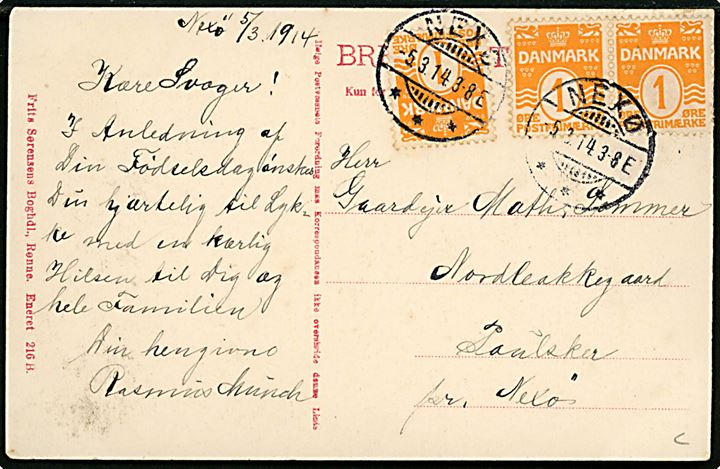 Nexö 5/3. 1914
Kære Svager!
I Anledning af
Din Fødselsdag ønskes
Du hjærtelig til Lyk-
ke med en kærlig
Hilsen til Dig og
hele Familien
Din hengivne
Rasmus Munch
Frits Sørensens Boghdl., Rønne. Eneret 216 B.
Ifølge Postvæsenets Forordning maa Korrespondancen ikke overskride denne Linie
BR
Kun for
NEXØ
5.3.14.3-8E
DANMARK
1
ØRE
DANMARK
1
ØRE
POSTFRIMÆRKE
DANMARK
1
ØRE
NEXØ
5.3.14.3-8E
Herr
Gaardejer Math. Sommer
Nordleakkegaard
Poulsker
pr. Nexö